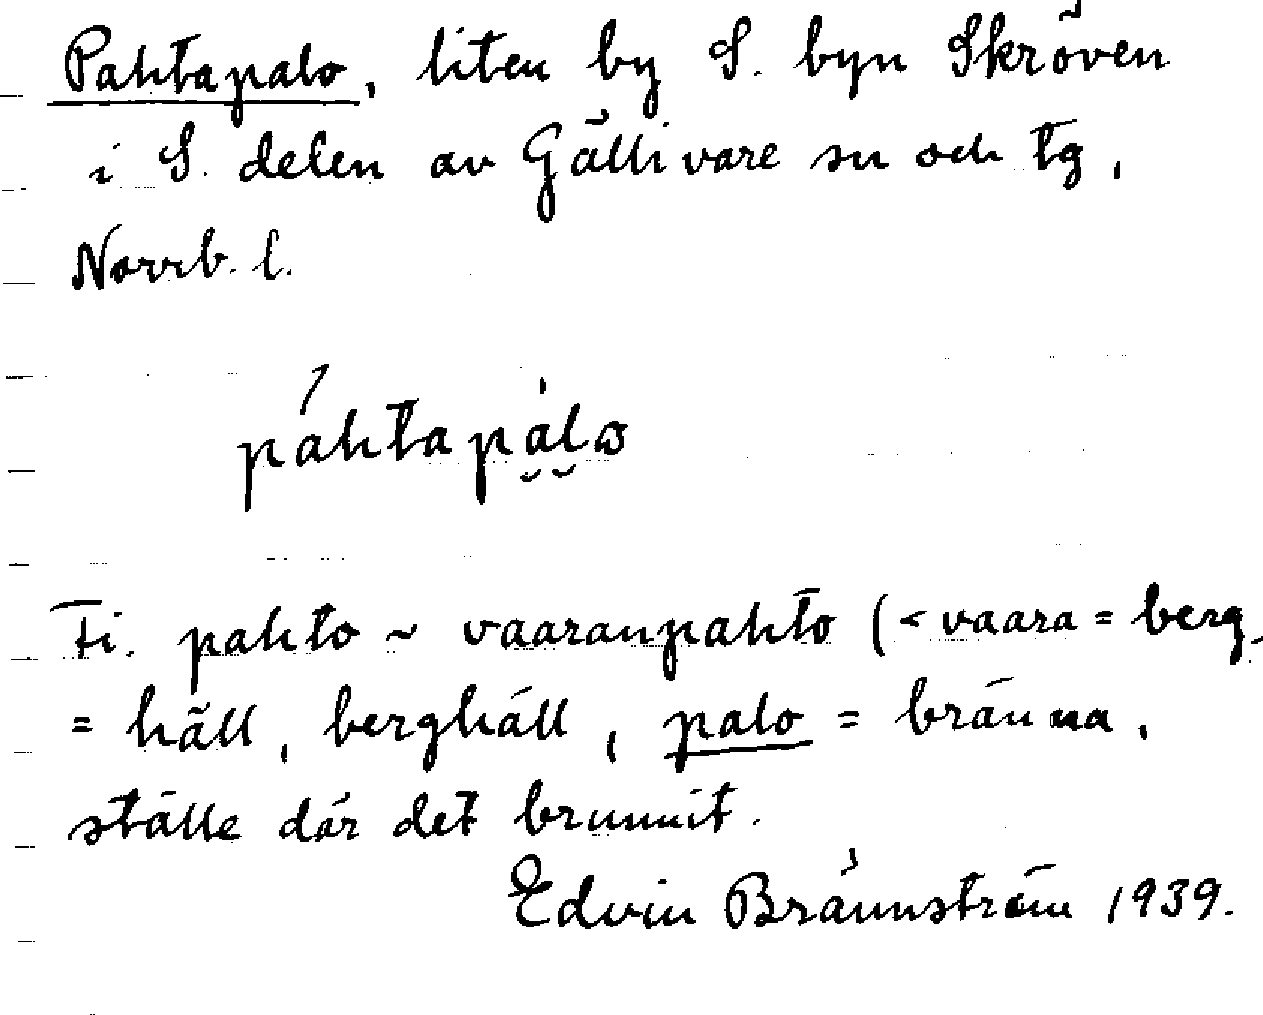 Pahtapalo, liten by S. byn Skröven
i S. delen av Gällivare sn och tg,
Norrb. l.
páhtapàlo
Fi. pahto ~ vaaranpahto (< vaara = berg,
= häll, berghäll, palo = bränna,
ställe där det brunnit.
Edvin Brännström 1939.